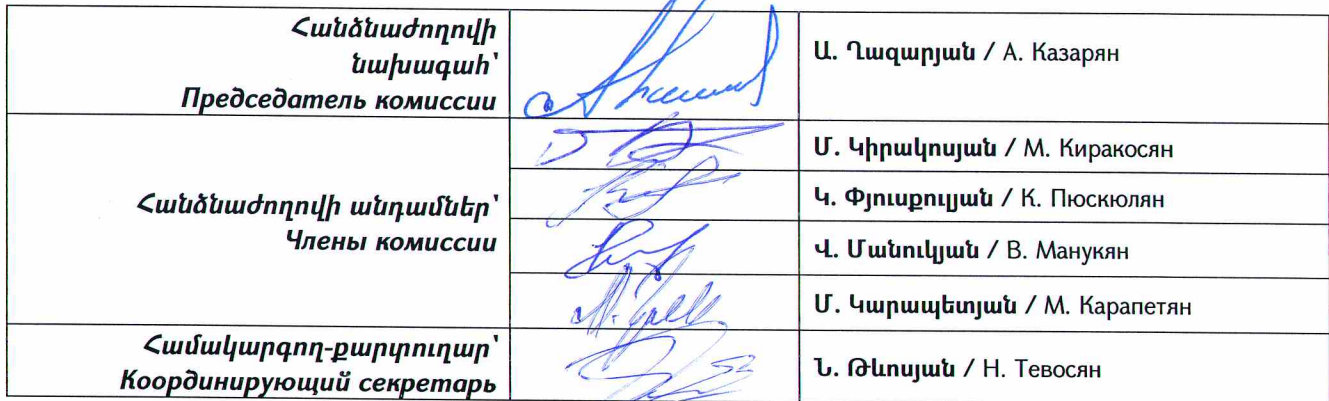 Հանձնաժողովի
նախագահ՝
Председатель комиссии
Ա. Ղազարյան / А. Казарян
Հանձնաժողովի անդամներ՝
Члены комиссии
Մ. Կիրակոսյան / М. Киракосян
Կ. Փյուսքուլյան / К. Пюскюлян
Վ. Մանուկյան / В. Манукян
Մ. Կարապետյան / М. Карапетян
Համակարգող-քարտուղար՝
Координирующий секретарь
Ն. Թևոսյան / Н. Тевосян